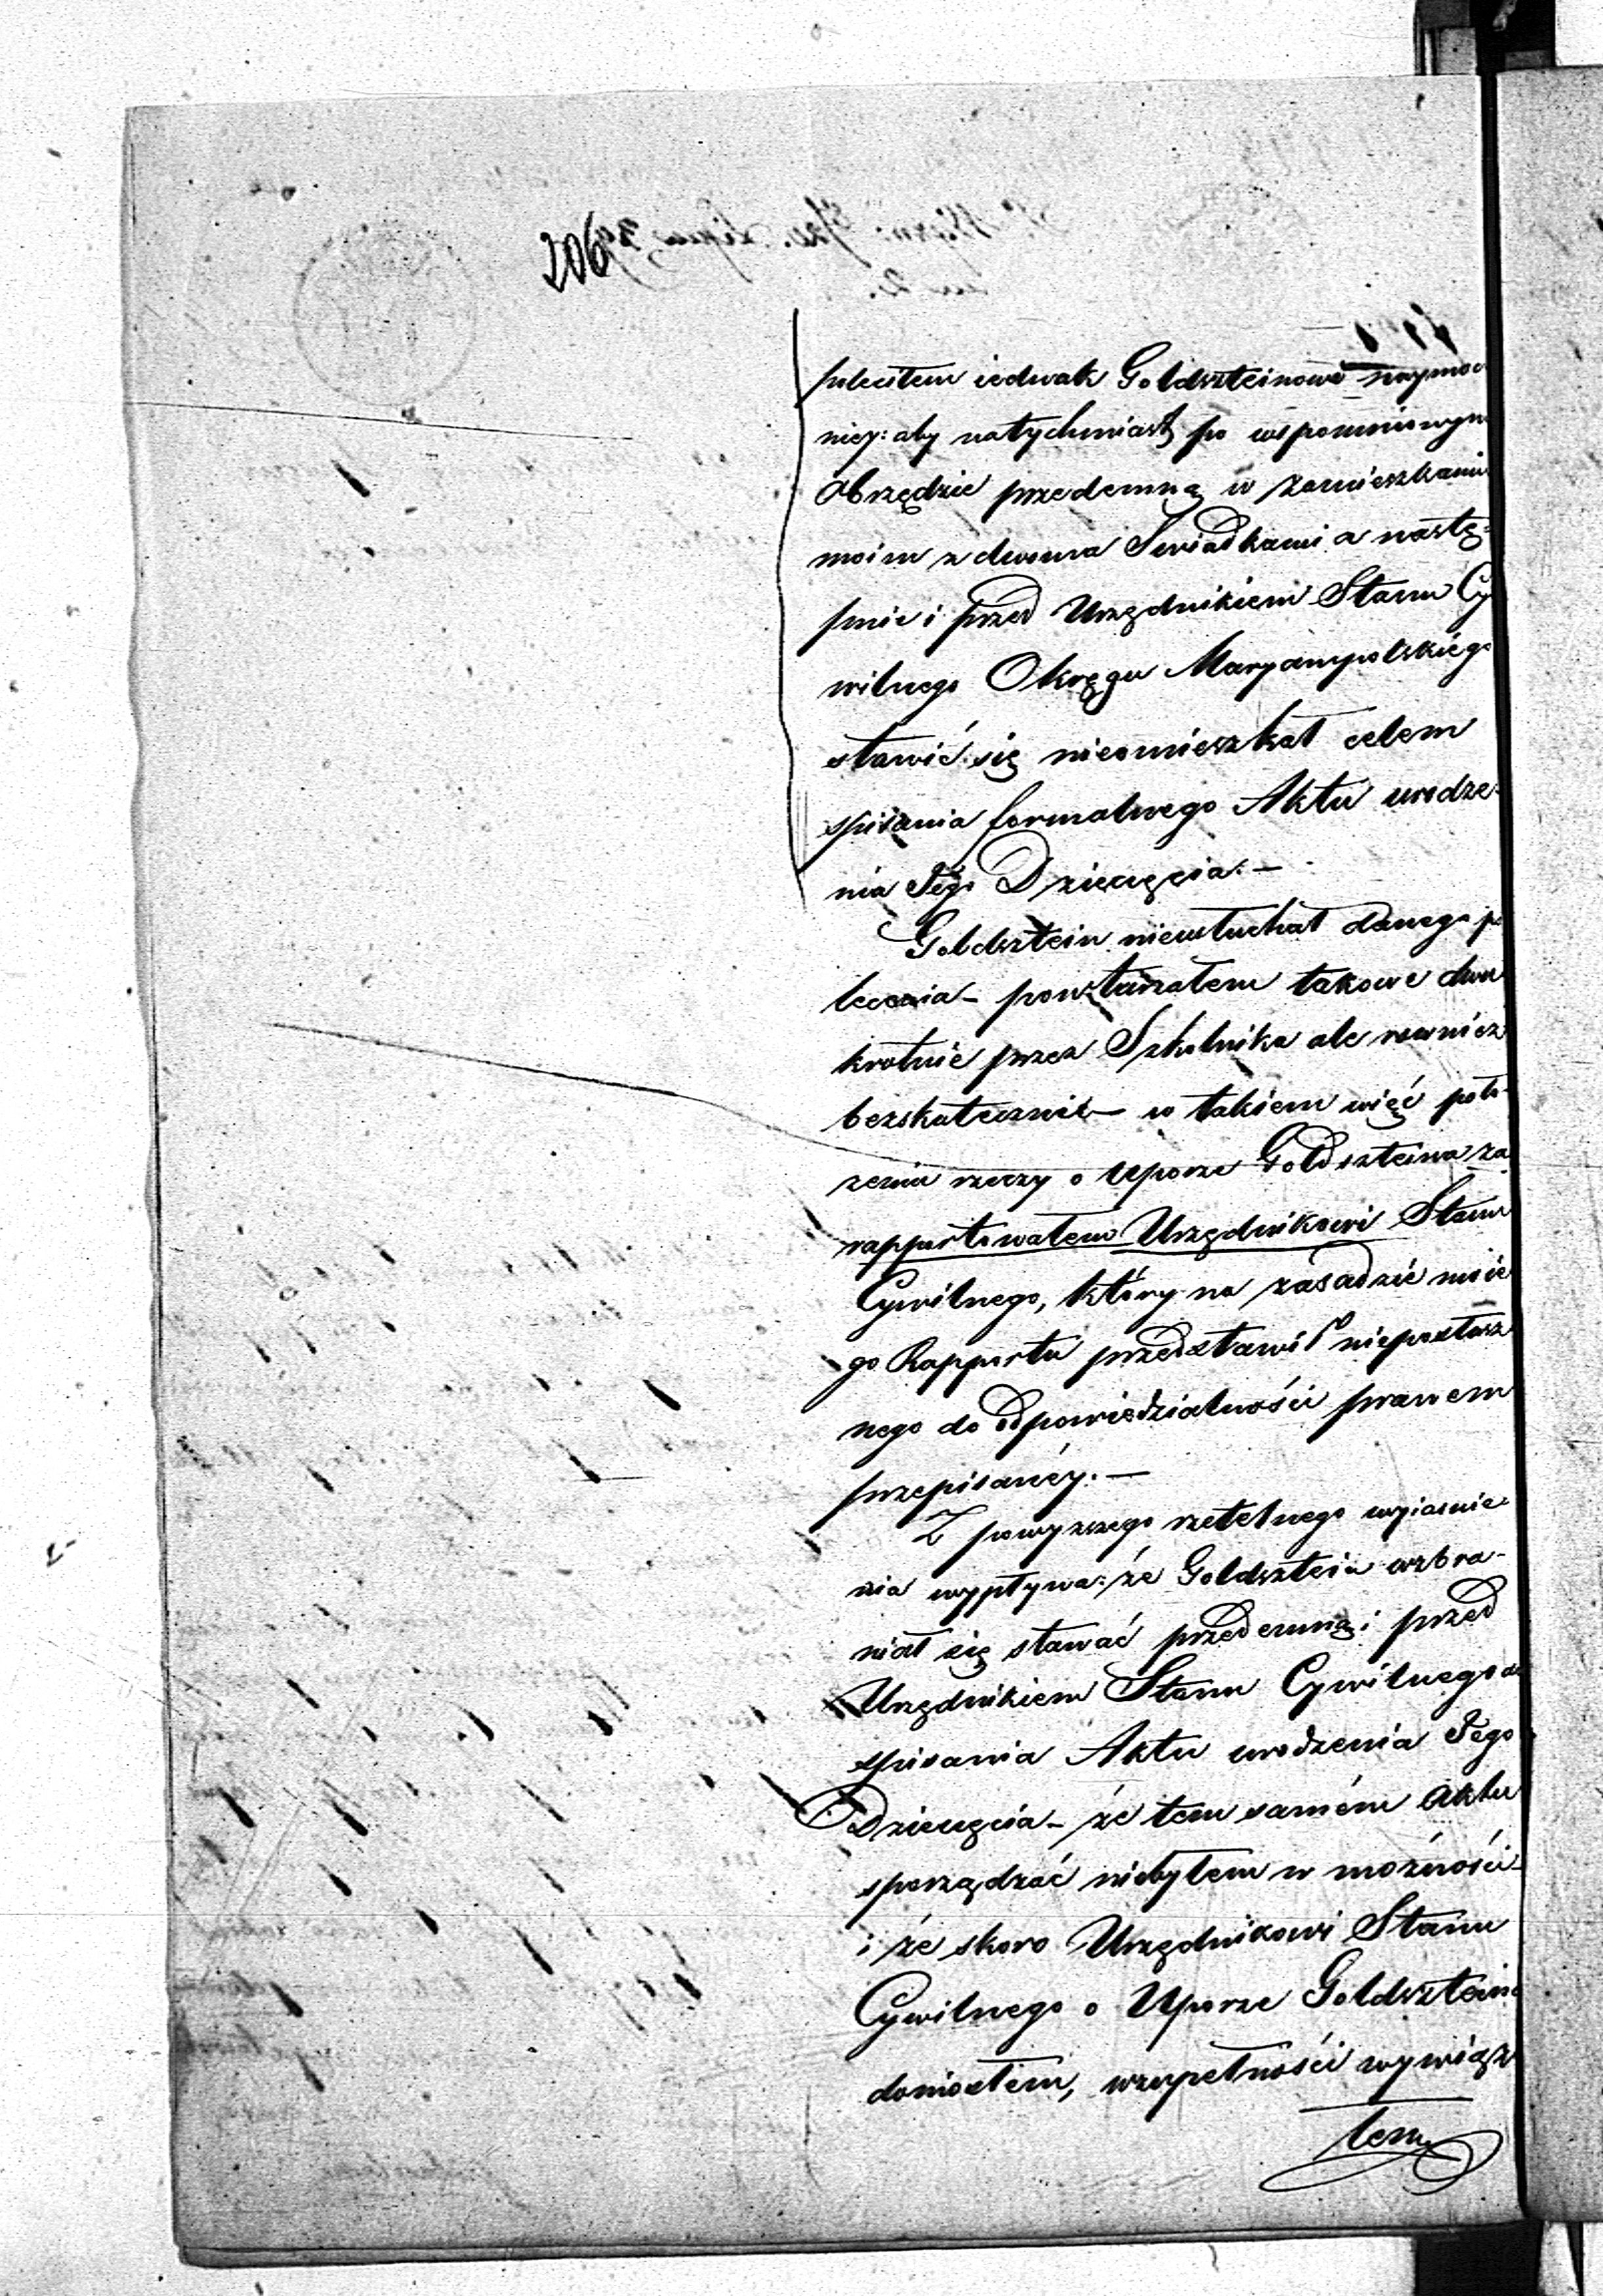 206
poleciłem iednak Goldszteinowi naymoc
niey: aby natychmiast po wspomnionym
Obrzędzie przedemną w zamieszkaniu
moim z dwoma Swiadkami a nastę=
pnie i przed Urzędnikiem Stanu Cy
wilnego Okręgu Maryampolskiego
stawić się nieomieszkał celem
spisania formalnego Aktu urodze-
nia Jego Dziecięcia.—
Goldsztein nieusłuchał danego po
lecenia – powtarzałem takowe dwu
krotnie przez Szkolnika ale rownież
bezskutecznie – w takiem więć poło-
żeniu rzeczy o uporze Goldszteina za
rapportowałem Urzędnikowi Stanu
Cywilnego, który na zasadzie moie
go Rapportu przedstawił nieposłusz
nego do odpowiedzialności prawem
przepisanéy.—
Z powyższego rzetelnego wyiasnie-
nia wypływa: że Goldsztein wzbra-
niał się stawać przedemną i przed
Urzędnikiem Stanu Cywilnego do
spisania Aktu urodzenia Jego
Dziecięcia – że tem samém aktu
sporządzać niebyłem w możności –
i że skoro Urzędnikowi Stanu
Cywilnego o Uporze Goldszteina
doniosłem, wzupełności wywiąza
łem